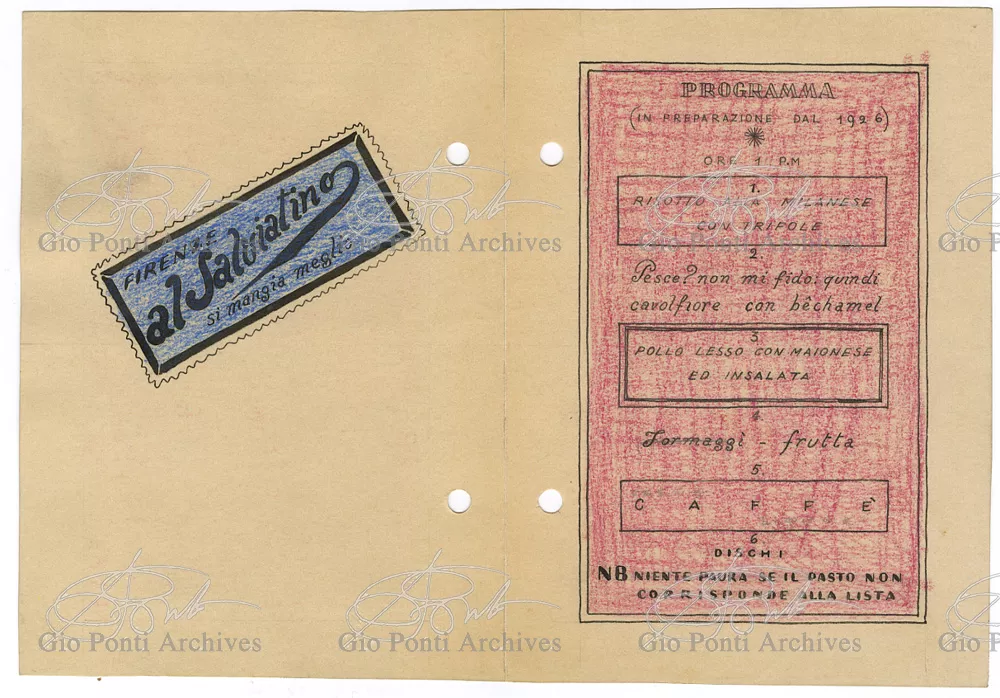 FIRENZE
al Salviatino
si mangia meglio
PROGRAMMA
(IN PREPARAZIONE DAL 1926)
ORE 1 P.M
1.
RISOTTO ALLA MILANESE
CON TRIFOLE
2.
Pesce? non mi fido: quindi
cavolfiore con bêchamel
3
POLLO LESSO CON MAIONESE
ED INSALATA
4
Formaggi - frutta
5.
CAFFÈ
6
DISCHI
NB NIENTE PAURA SE IL PASTO NON
CORRISPONDE ALLA LISTA
Gio Ponti Archives
Gio Ponti Archives
Gio Ponti Archives
Gio Ponti Archives
Gio Ponti Archives
Gio Ponti Archives
Gio Ponti Archives
Gio Ponti Archives